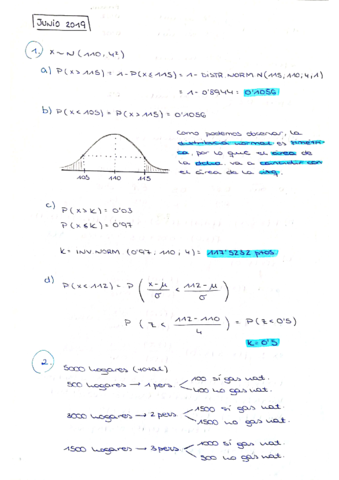 JUNIO 2019
1. X ~ N (110, 4²)
a) P(X > 115) = 1 - P(X ≤ 115) = 1 - DISTR.NORM N(115, 110, 4, 1)
= 1 - 0'8944 = 0'1056
b) P(X < 105) = P(X > 115) = 0'1056
Como podemos observar, la
distribución normal es simétri-
ca, por lo que el área de
la dcha. va a coincidir con
el área de la izq.
105 110 115
c) P(X > K) = 0'03
P(X ≤ K) = 0'97
K = INV.NORM (0'97; 110; 4) = 117'5232 ptos.
d) P(X < 112) = P ( X - μ / σ < 112 - μ / σ )
P ( Z < 112 - 110 / 4 ) = P(Z < 0'5)
K = 0'5
2. 5000 hogares (total)
500 hogares → 1 pers. 100 sí gas nat.
400 no gas nat.
3000 hogares → 2 pers. 1500 sí gas nat.
1500 no gas nat.
1500 hogares → 3 pers. 1000 sí gas nat.
500 no gas nat.